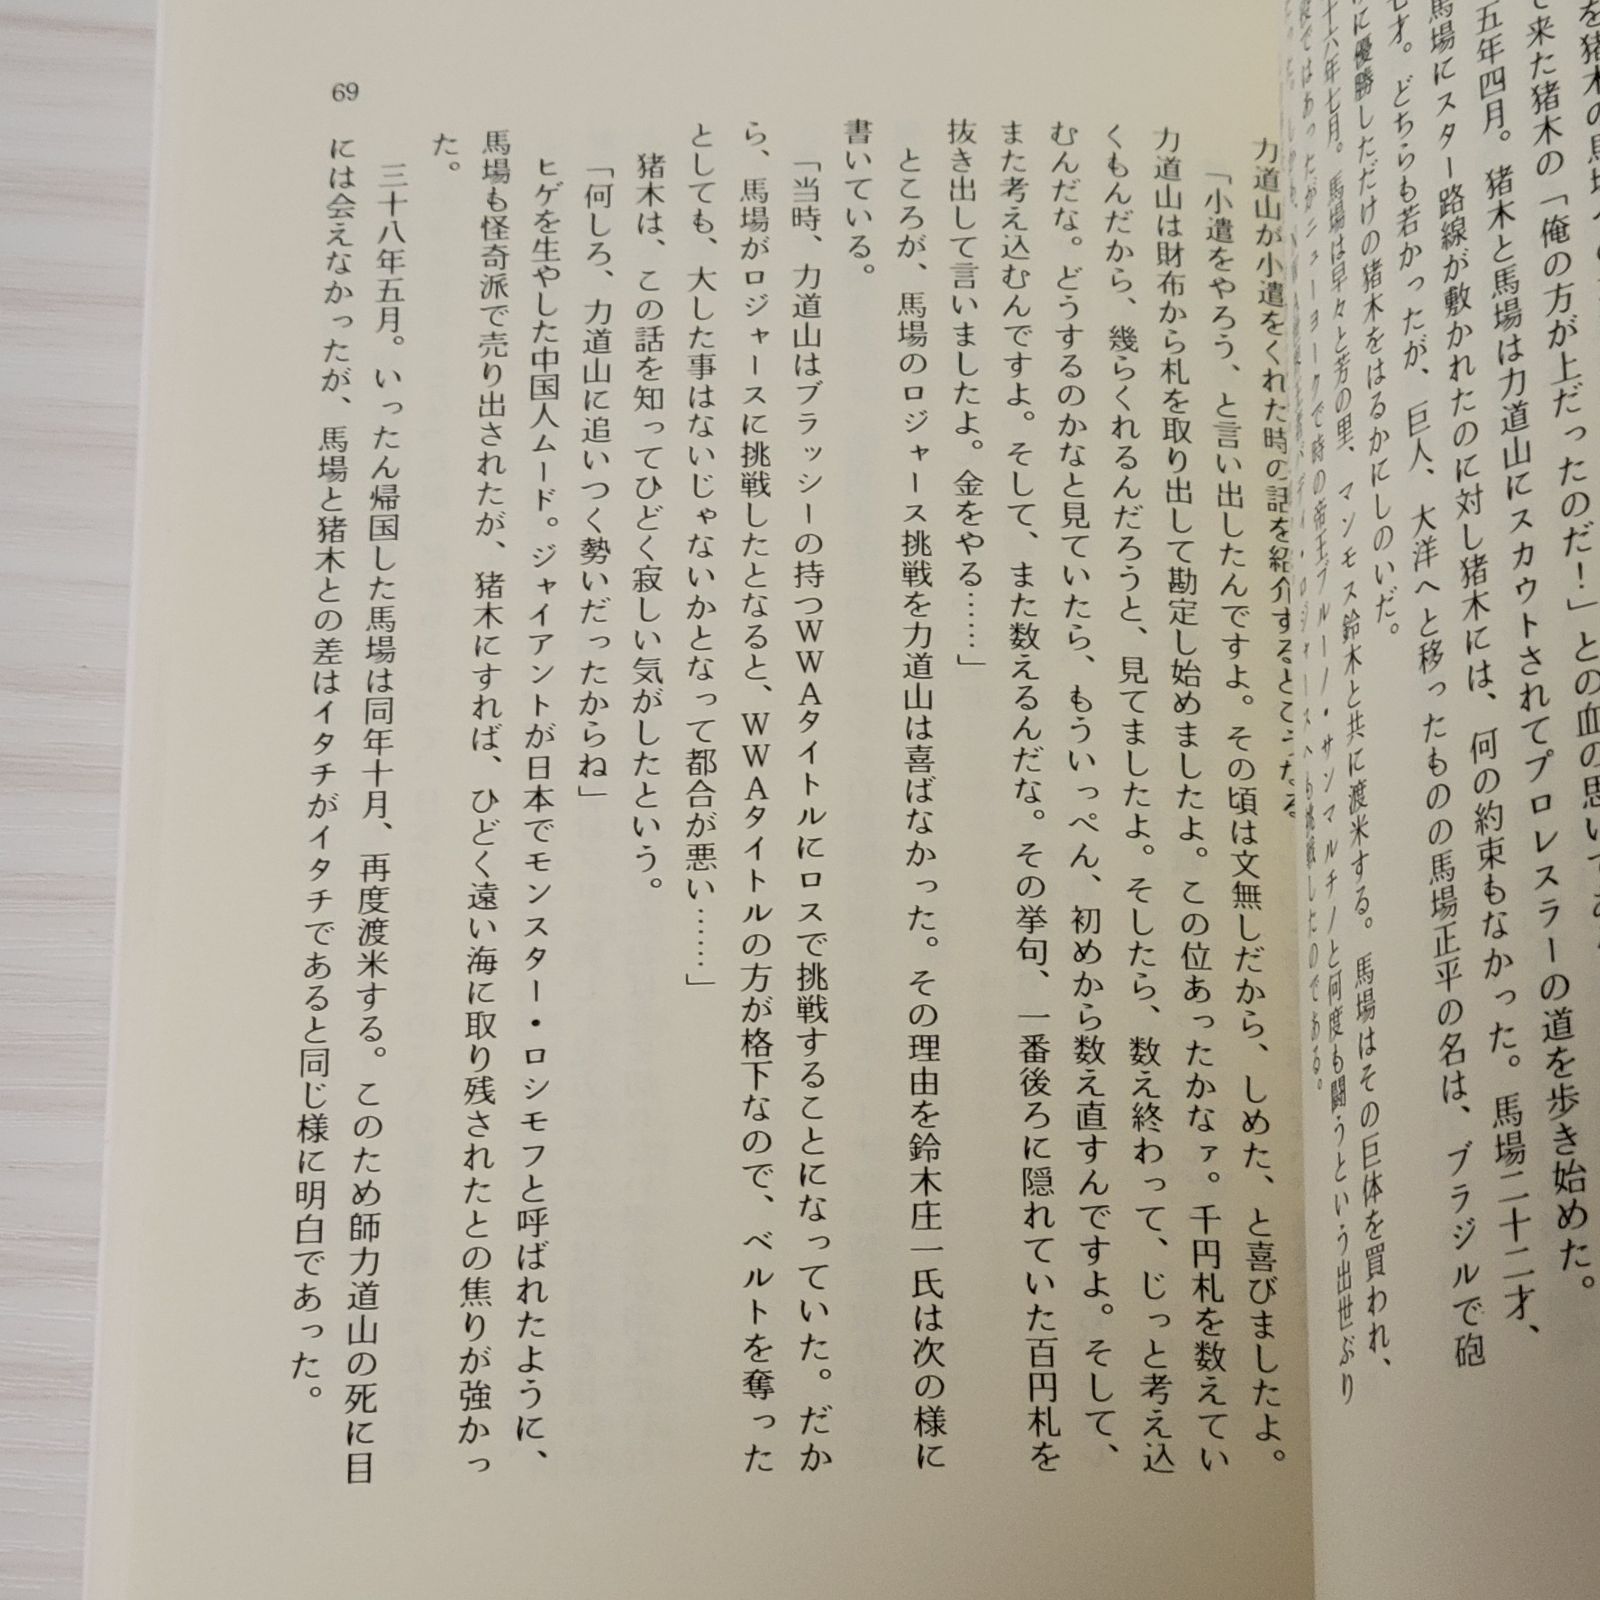 を猪木の馬場への
で来た猪木の「俺の方が上だったのだ!」との血の思いであ
五年四月。猪木と馬場は力道山にスカウトされてプロレスラーの道を歩き始めた。
馬場にスター路線が敷かれたのに対し猪木には、何の約束もなかった。馬場二十二才、
七才。どちらも若かったが、巨人、大洋へと移ったものの馬場正平の名は、ブラジルで砲
に優勝しただけの猪木をはるかにしのいだ。
十六年七月。馬場は早々と芳の里、マンモス鈴木と共に渡米する。馬場はその巨体を買われ、
ではあったがニューヨークで時の帝王ブルーノ・サンマルチノと何度も闘うという出世ぶり
ディ・ロジャースへも挑戦したのである。
力道山が小遣をくれた時の話を紹介するとこうなる
「小遣をやろう、と言い出したんですよ。その頃は文無しだから、しめた、と喜びましたよ。
力道山は財布から札を取り出して勘定し始めましたよ。この位あったかなァ。千円札を数えてい
くもんだから、幾らくれるんだろうと、見てましたよ。そしたら、数え終わって、じっと考え込
むんだな。どうするのかなと見ていたら、もういっぺん、初めから数え直すんですよ。そして、
また考え込むんですよ。そして、また数えるんだな。その挙句、一番後ろに隠れていた百円札を
抜き出して言いましたよ。金をやる……」
ところが、馬場のロジャース挑戦を力道山は喜ばなかった。その理由を鈴木庄一氏は次の様に
書いている。
「当時、力道山はブラッシーの持つWWAタイトルにロスで挑戦することになっていた。だか
ら、馬場がロジャースに挑戦したとなると、WWAタイトルの方が格下なので、ベルトを奪った
としても、大した事はないじゃないかとなって都合が悪い……」
猪木は、この話を知ってひどく寂しい気がしたという。
「何しろ、力道山に追いつく勢いだったからね」
ヒゲを生やした中国人ムード。ジャイアントが日本でモンスター・ロシモフと呼ばれたように、
馬場も怪奇派で売り出されたが、猪木にすれば、ひどく遠い海に取り残されたとの焦りが強かっ
た。
三十八年五月。いったん帰国した馬場は同年十月、再度渡米する。このため師力道山の死に目
には会えなかったが、馬場と猪木との差はイタチがイタチであると同じ様に明白であった。
69